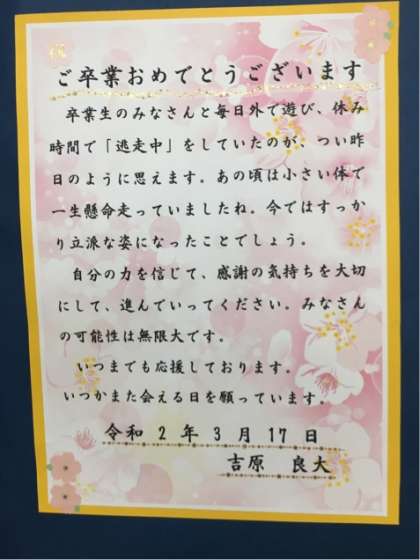 祝
ご卒業おめでとうございます
卒業生のみなさんと毎日外で遊び、休み
時間で「逃走中」をしていたのが、つい昨
日のように思えます。あの頃は小さい体で
一生懸命走っていましたね。今ではすっか
り立派な姿になったことでしょう。
自分の力を信じて、感謝の気持ちを大切
にして、進んでいってください。みなさん
の可能性は無限大です。
いつまでも応援しております。
いつかまた会える日を願っています。
令和2年3月17日
吉原 良大